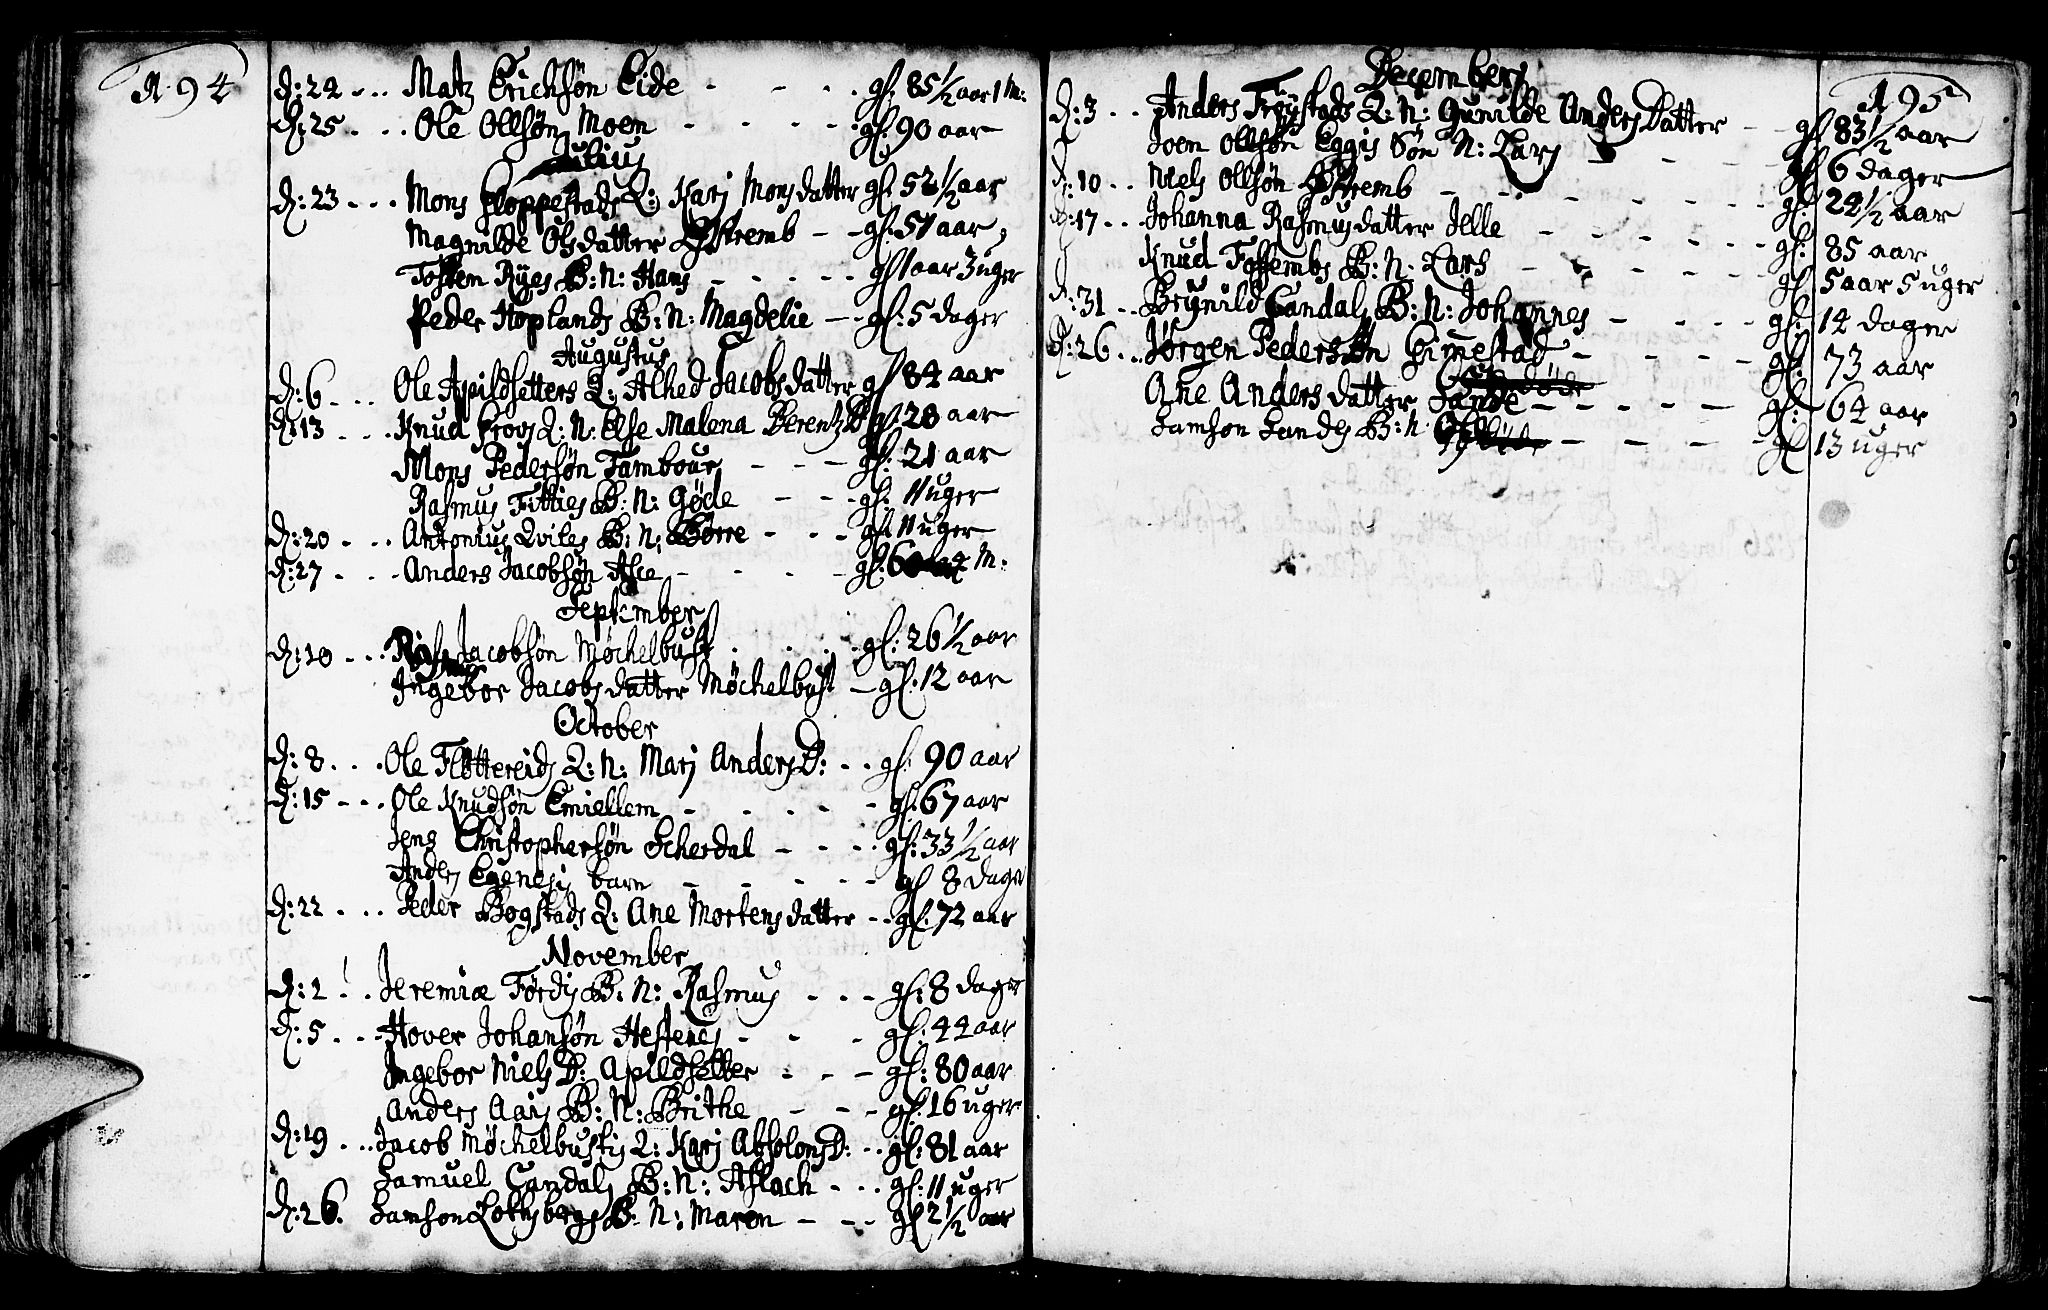 194
d: 24 - - - Matz Erichsøn Eide - - - - gl: 85 1/2 aar 1 M:
d: 25 - - - Ole Ollsøn Moen - - - - gl: 90 aar
Julius
d: 23 - - - Mons Kloppestads Q: Karj Monsdatter gl: 52 1/2 aar
Magnilde Olsdatter Schremb - - gl: 51 aar
Tosten Ryes B: N: Hans - - - - - gl 1 aar 3 uger
Peder Hoplands B: N: Magdelie - - gl: 5 dager
Augustus
d: 6 - - - Ole Apildsetters Q: Alhed Jacobsdatter gl 84 aar
d: 13 - - - Knud Frovs Q: N: Else Malena Berentz D gl: 28 aar
Mons Pedersøn Tambour - - - gl: 21 aar
Rasmus Fitties B: N: Gøde - - - gl: 11 uger
d: 20 - - - Antonius Qviles B: N: Børre - - - gl: 11 uger
d: 27 - - - Anders Jacobsøn Asce - - - - gl: 60 4 M:
September
d: 10 - - - Jacobsøn Møchelbust - - - - gl: 26 1/2 aar
Ingebor Jacobsdatter Møchelbust - gl: 12 aar
October
d: 8 - - - Ole Fløttereids Q: N: Marj Anders D: - - gl: 90 aar
d: 15 - - - Ole Knudsøn Emiellem - - - - - gl: 67 aar
Jens Christophersøn Scherdal - - - - gl: 33 1/2 aar
Anders Egenesis barn - - - - - gl 8 dage
d: 22 - - - Peder Bogstads Q: Ane Mortensdatter - - gl: 72 aar
November
d: 2 - - - Jeremiæ Førdis B: N: Rasmus - - - gl: 8 dager
d: 5 - - - Hover Johansøn Hestenes - - - gl: 44 aar
Ingebor Niels D: Apildsetter - - - gl: 80 aar
Anders Aars B: N: Brithe - - - gl: 16 uger
d: 19 - - Jacob Møchelbustis Q: Karj Absolons D: - - gl: 81 aar
Samuel Candals B: N: Aslach - - - gl: 11 uger
d: 26. Samson Lothsbergs B: N: Maren - - - gl 2 1/2 aar
December
195
d: 3 - - Anders Frøystads Q: N: Gunilde Anders Datter - - gl 83 1/2 aar
Joen Ollsøn Eggis Søn N: Lars - - - - gl 6 dager
d: 10 - - Niels Ollsøn Schremb - - - - - - - gl: 24 1/2 aar
d: 17 - - - Johanna Rasmusdatter Jelle - - - - - - gl: 85 aar
Knud Fossembs B: N: Lars - - - - - gl 5 aar 5 uger
d: 31 - - Brynild Candals B: N: Johannes - - - - gl: 14 dager
d: 26 - - Jørgen Pedersøn Gimestad - - - - - gl: 73 aar
Ane Anders datter Sande - - - - - gl: 64 aar
Samson Sandes B: N: - - - - - gl 13 uger